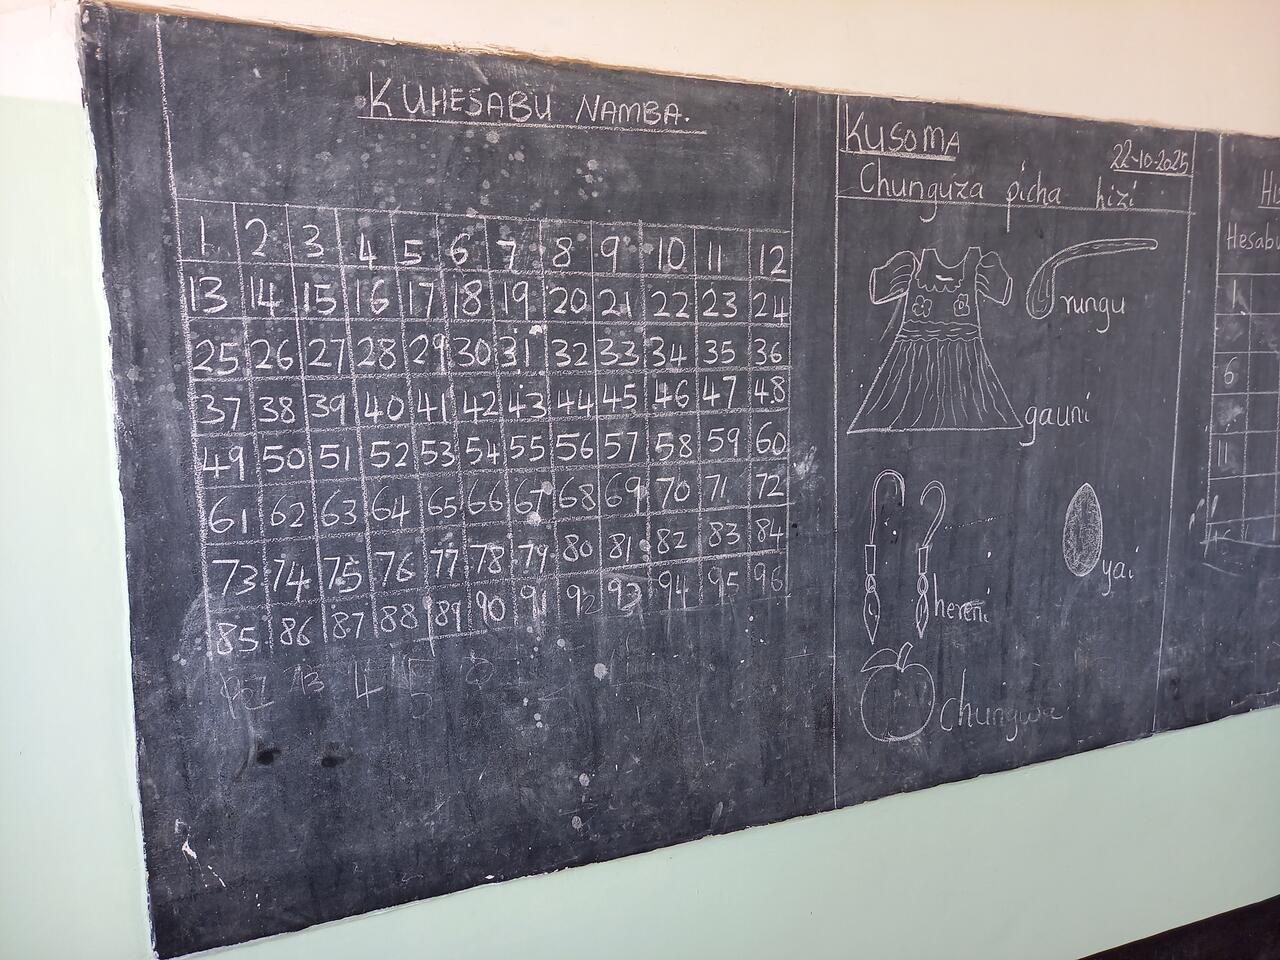 KUHESABU NAMBA.
1 2 3 4 5 6 7 8 9 10 11 12
13 14 15 16 17 18 19 20 21 22 23 24
25 26 27 28 29 30 31 32 33 34 35 36
37 38 39 40 41 42 43 44 45 46 47 48
49 50 51 52 53 54 55 56 57 58 59 60
61 62 63 64 65 66 67 68 69 70 71 72
73 74 75 76 77 78 79 80 81 82 83 84
85 86 87 88 89 90 91 92 93 94 95 96
KUSOMA
22-10-2025
Chunguza picha hizi
rungu
gauni
hereni
yai
Chungwa
Hesabu
1
6
11